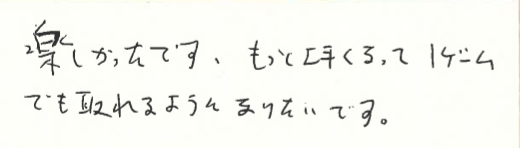 楽しかったです、もっと上手くなって1ゲーム
でも取れるようになりたいです。